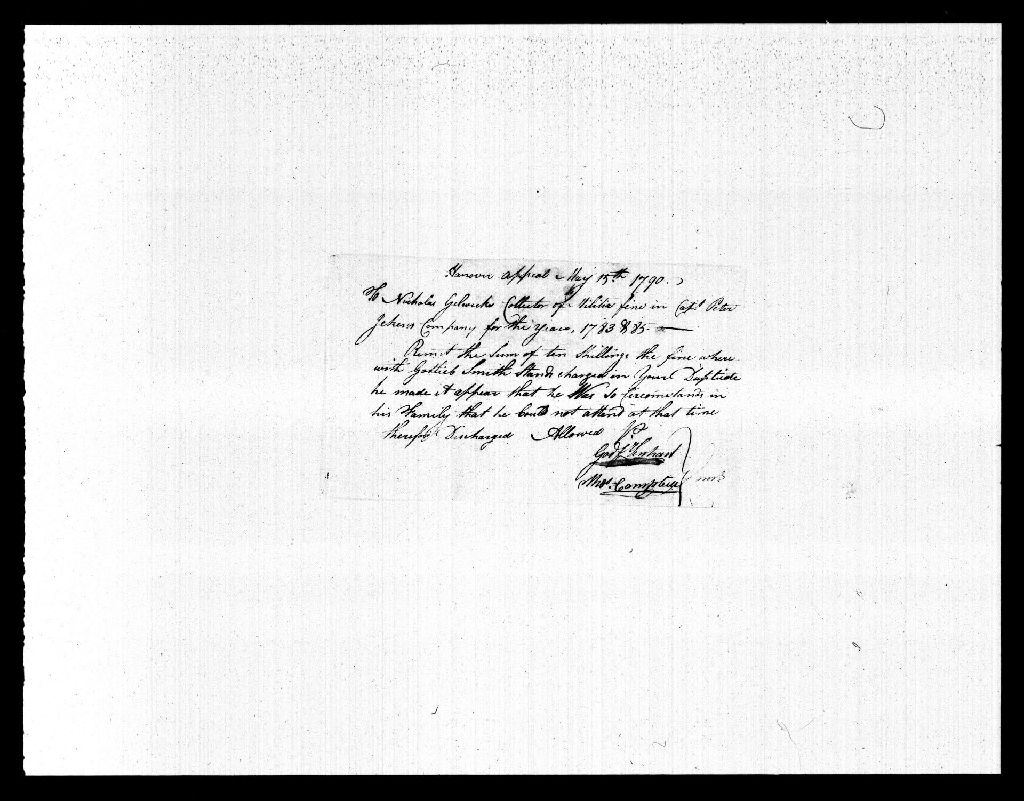 Hanover Appeal May 15th 1790
To Nicholas Gelwicks Collector of Militia fine in Capt Peter
Company for the years, 1783 & 85
Remit the Sum of ten Shillings the fine where
with Godlieb Smith Stands charged in Your Duplicate
he made it appear that he Was So circumstands in
his Family that he Could not attend at that time
therefor Discharged Allowed Pr